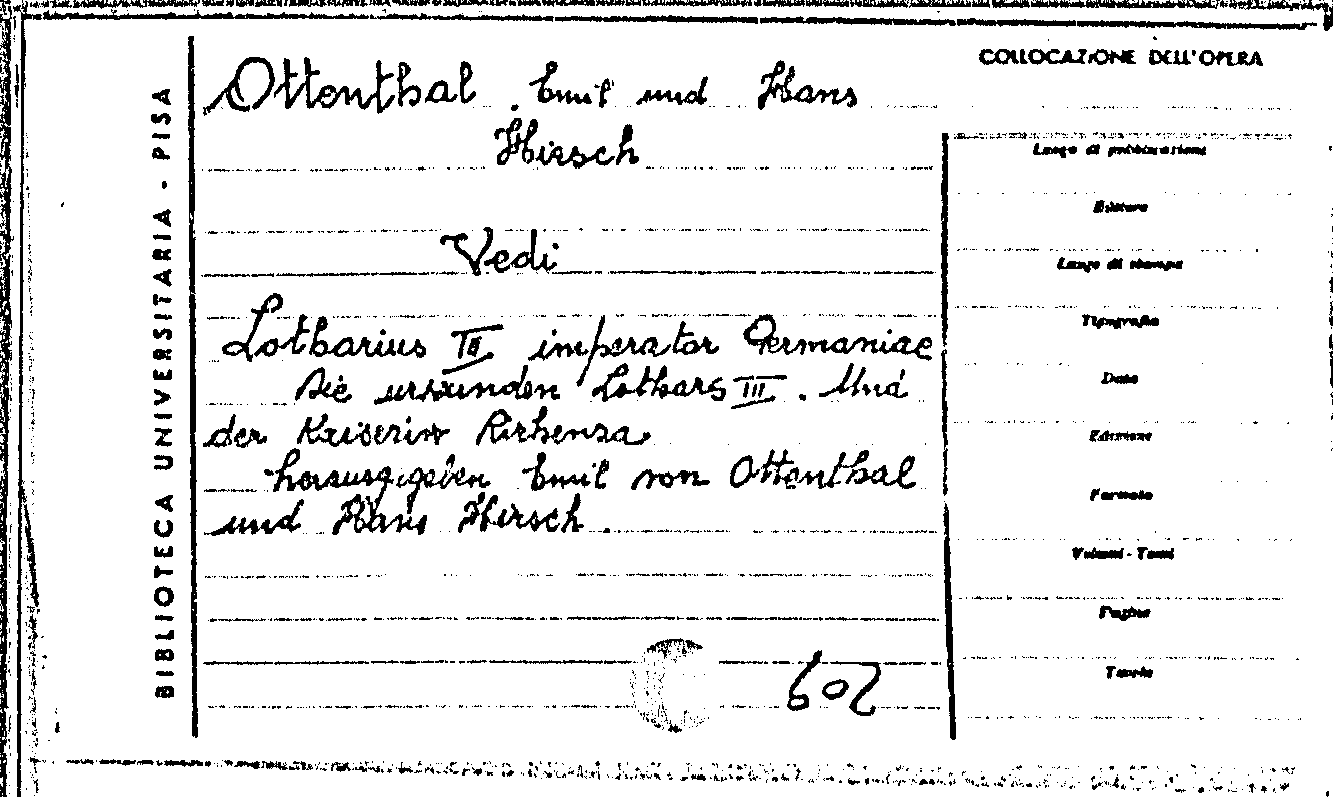 BIBLIOTECA UNIVERSITARIA - PISA
Ottenthal Emil und Hans
Hirsch
Vedi
Lotharius III imperator Germaniae
Die urkunden Lothars III. Und
der Kaiserin Richenza
herausgegeben Emil von Ottenthal
und Hans Hirsch.
602
COLLOCAZIONE DELL'OPERA
Luogo di pubblicazione
Editore
Luogo di stampa
Tipografia
Data
Edizione
Formato
Volumi - Tomi
Pagine
Tavole